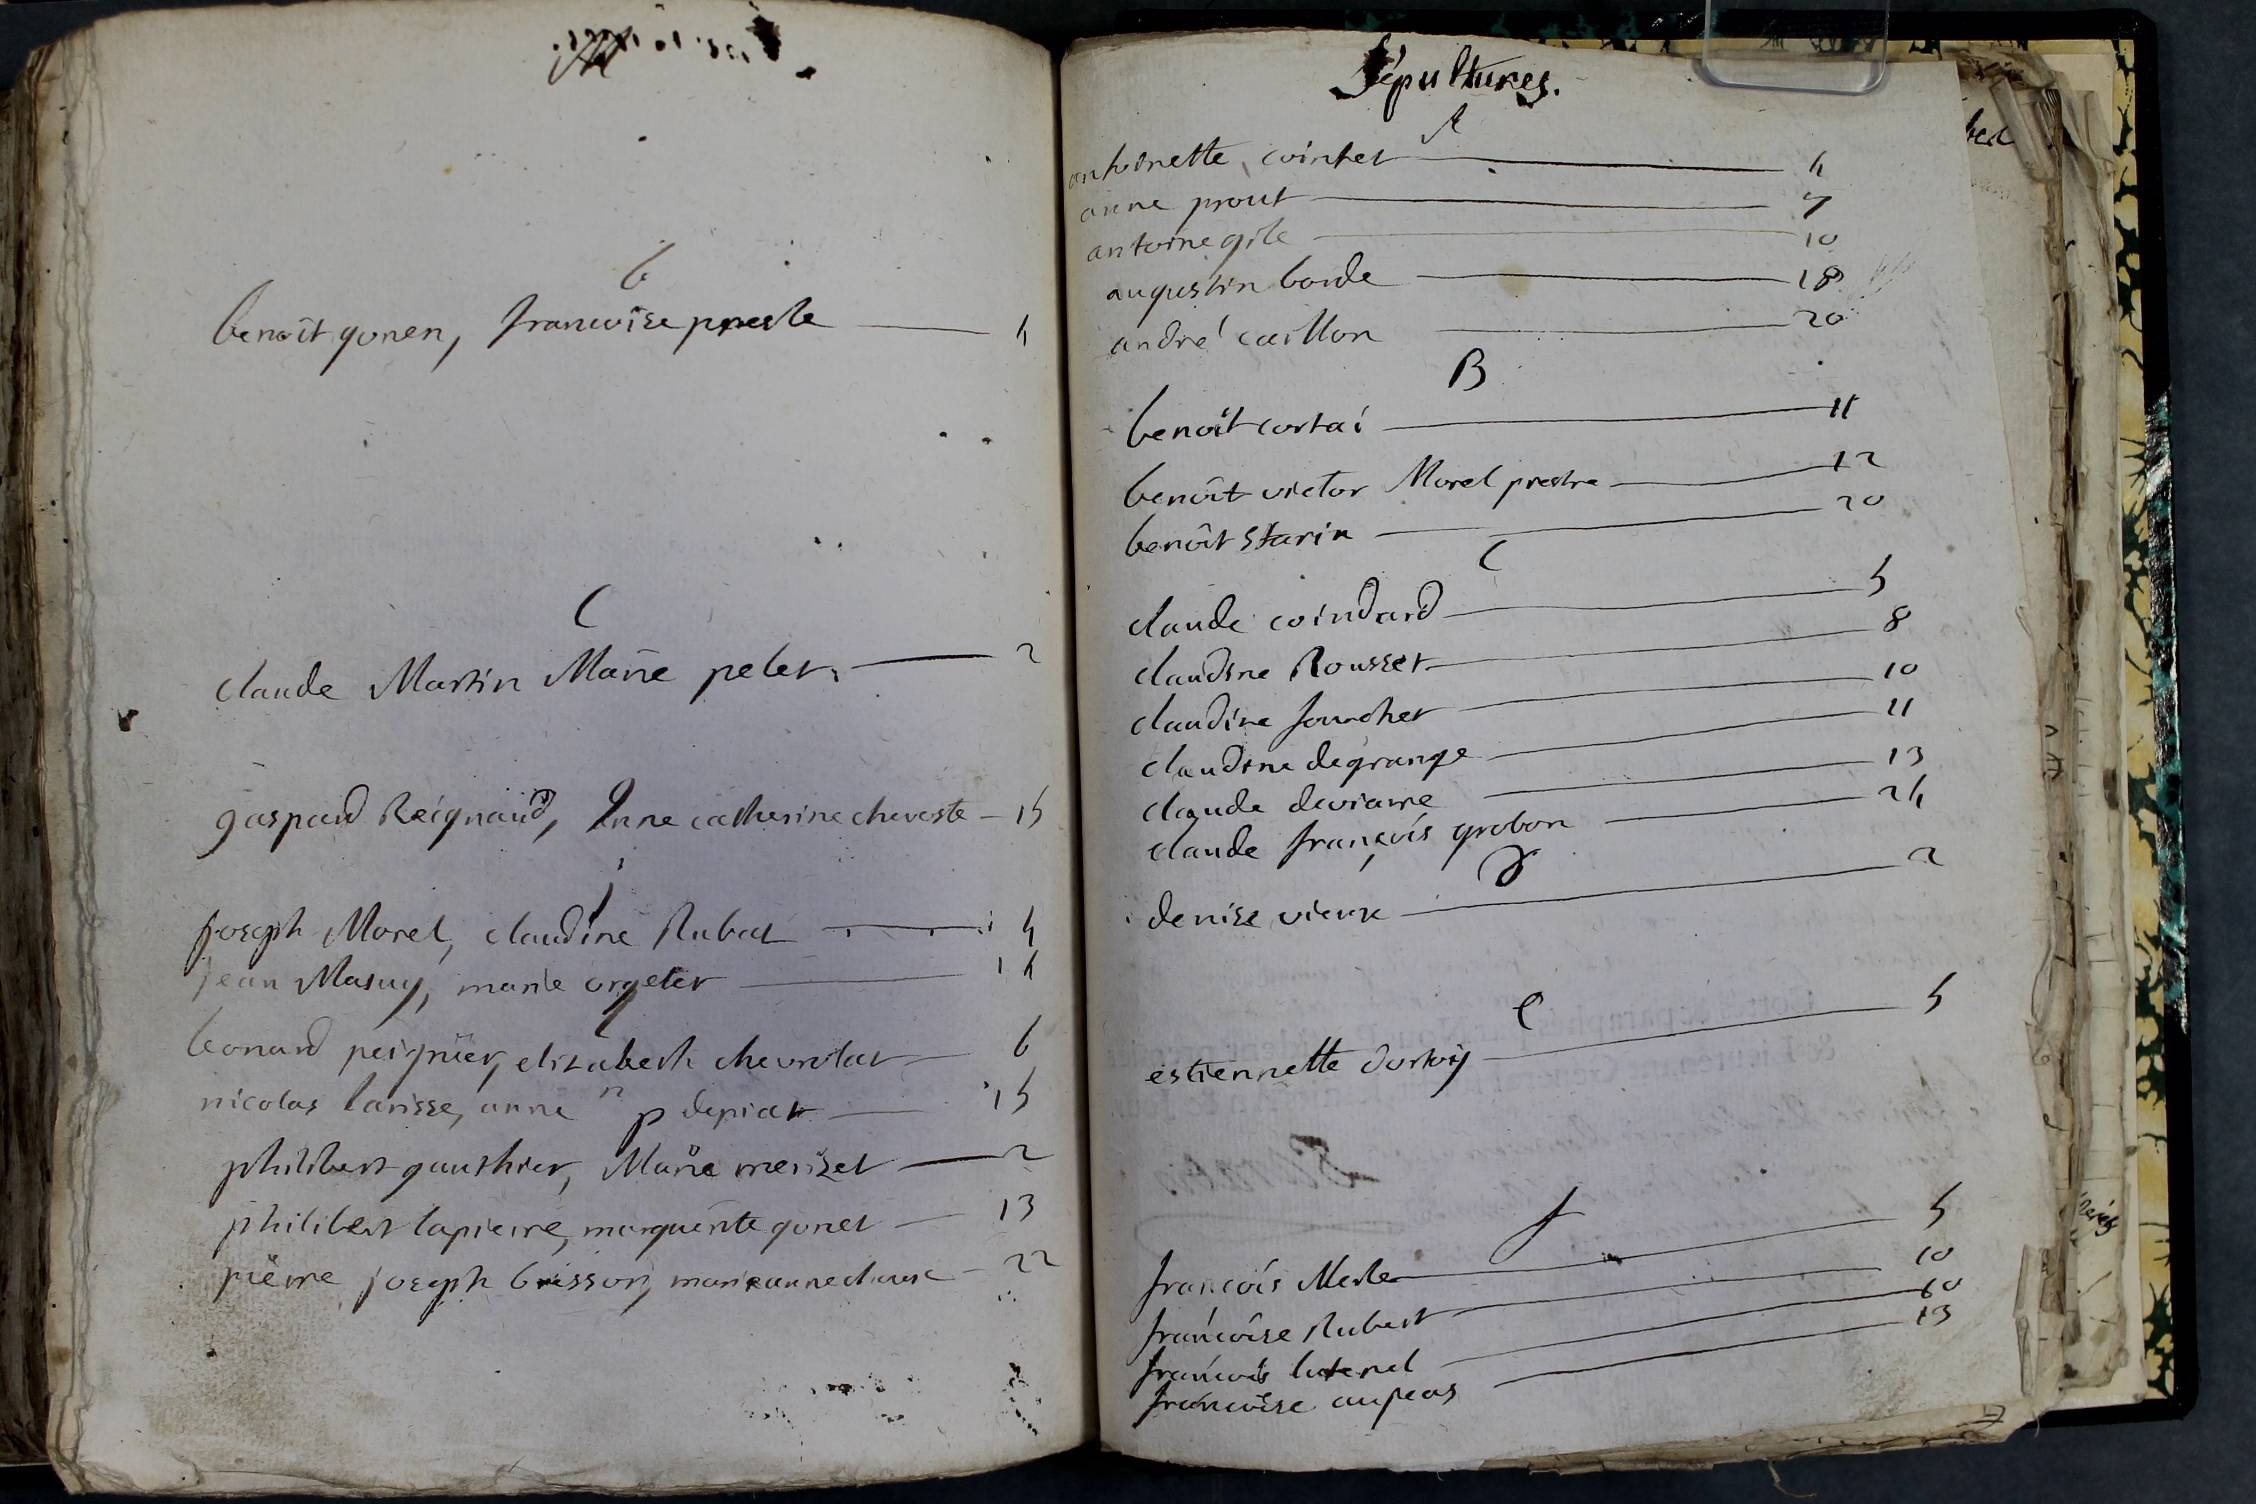 b
benoît gonen, francoise presle — 4
C
claude Martin Marie pelet — 2
gaspard Reignaud, Anne catherine cheveste — 15
j
joseph Morel, claudine Rubat — 4
jean Masuy, marie orgetet — 14
l
leonard peignier, elizabeth chevrolat — 6
n
nicolas larisse, anne depiat — 15
p
philibert gauthier, Marie merizet — 2
philibert lapierre, marguerite gonet — 13
pierre joseph brisson, marie anne — 22
Sépultures.
A
antoinette cointet — 4
anne prout — 7
antoine gile — 10
augustin borde — 18
andré caillon — 20
B
benoît cortai — 11
benoît victor Morel prestre — 12
benoît Starin — 20
C
claude coindard — 5
claudine Rousset — 8
claudine fourchet — 10
claudine degrange — 11
claude — 13
claude françois grobon — 24
D
denise — 2
e
estiennette — 5
f
françois Merle — 5
françoise Rubert — 10
françois — 10
françoise — 13